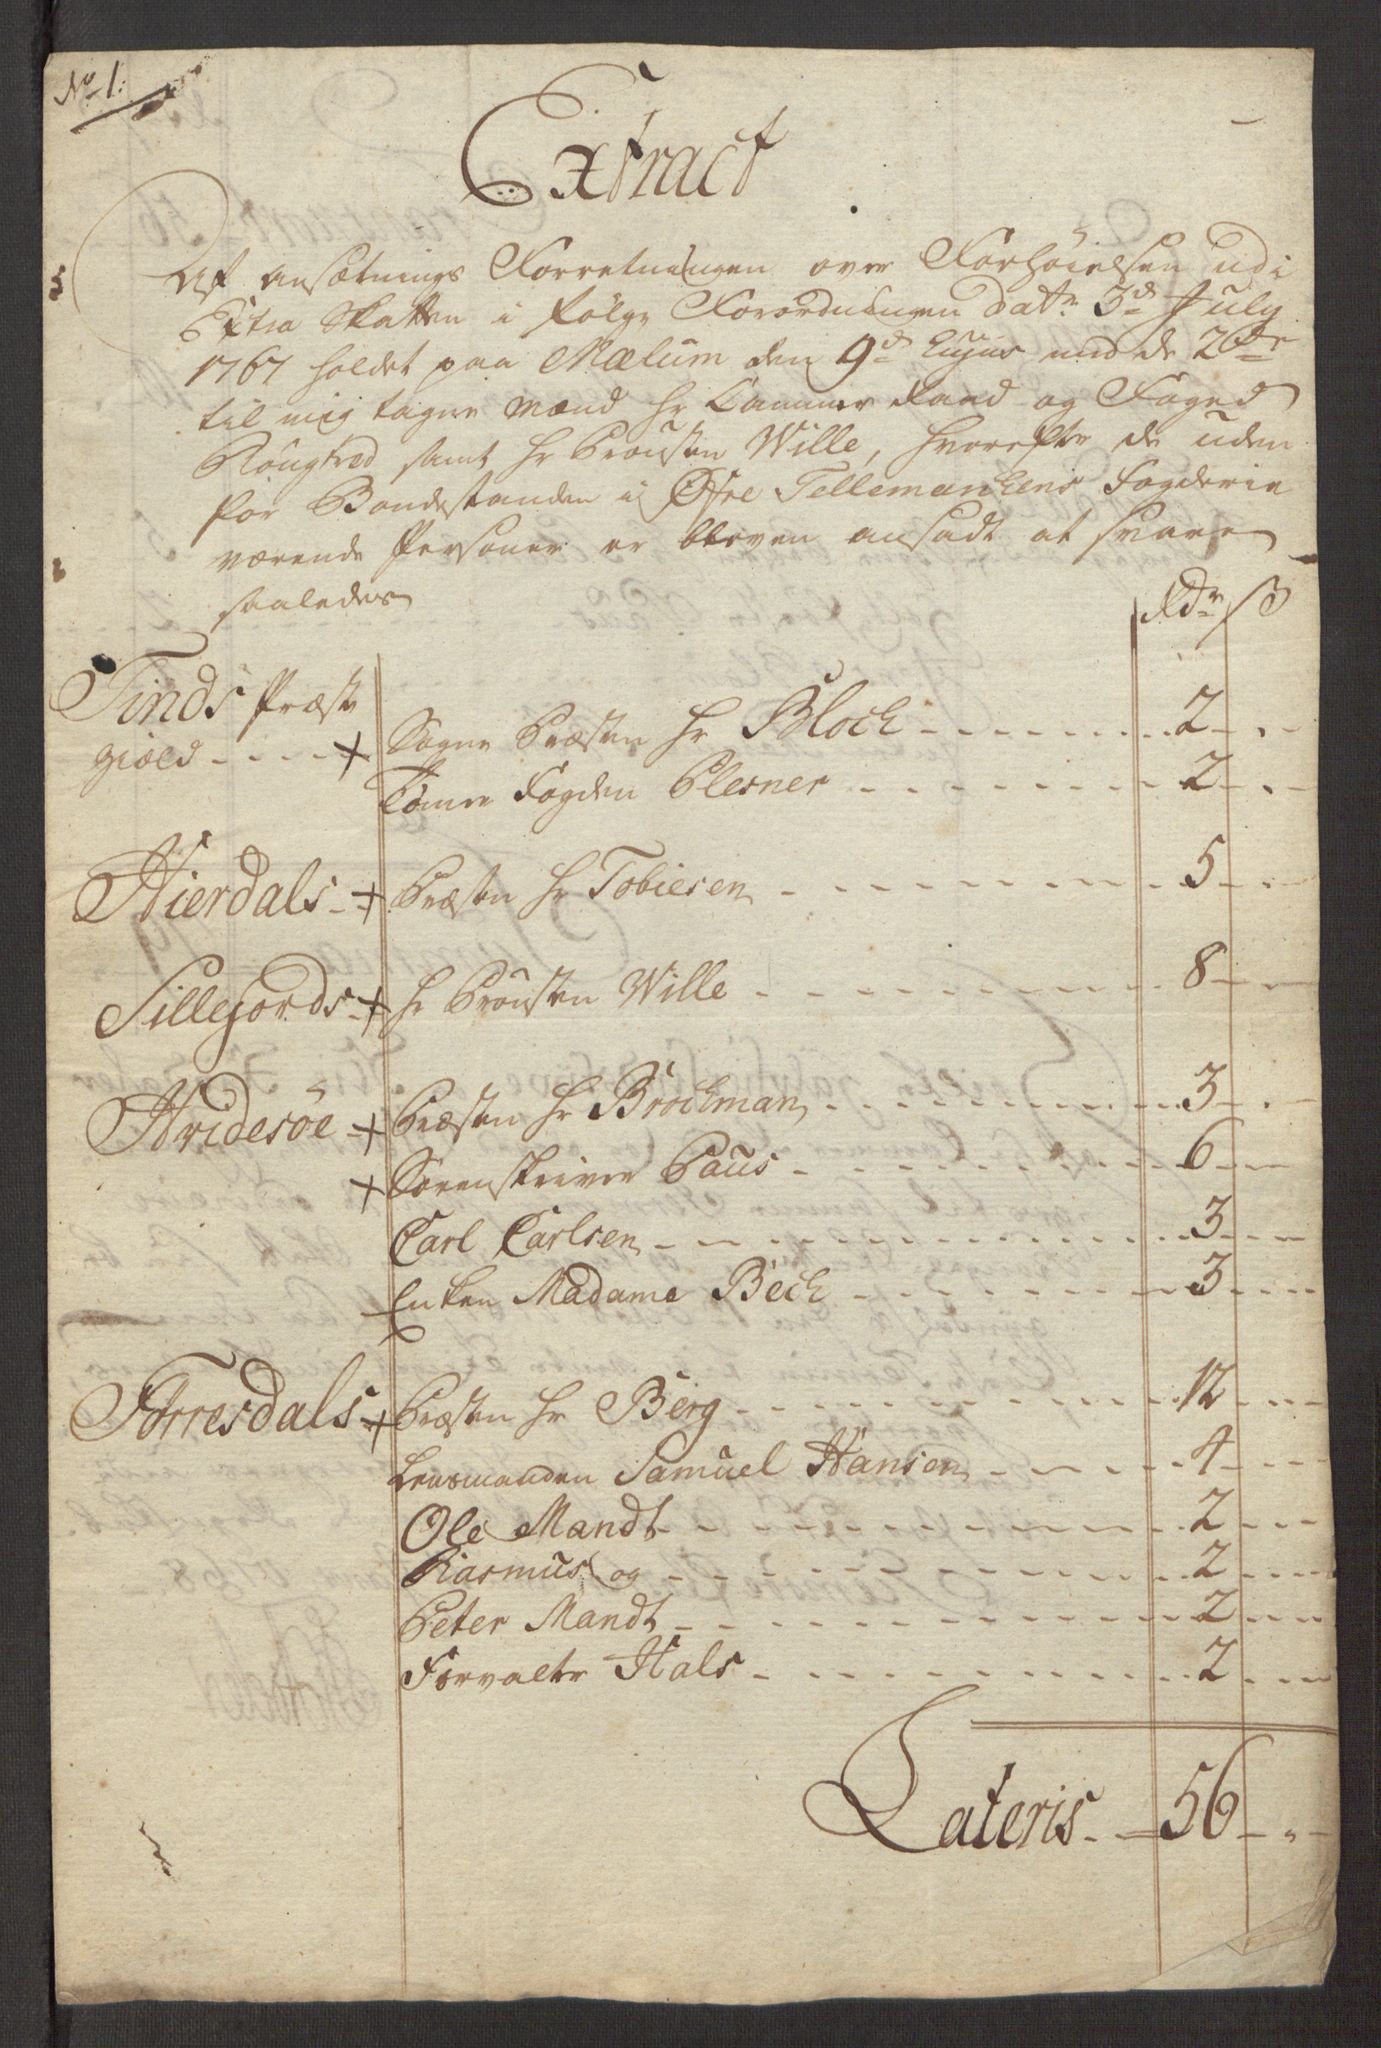 No 1.
Extract
Af ansætnings Forretningen over Forhöielsen udi
Extra Skatten i følge Forordningen dat. 3d July
1767 holdet paa Mælum den 9d hujus med de 2de
til mig tagne Mænd Hr Cammer Raad og Foged
samt Hr Prousten Wille, hvorefter de uden
for Bondestanden i Øfre Tellemarkens Fogderie
værende Personer er bleven ansadt at svare
saaledes
Rdr ß
Tinds Præste
gield - - - - + Sogne Præsten Hr Bloch - - - 2 - . -
Fogden Plesner - - - 2 - . -
Hierdals - + Præsten Hr Tobiesen - - - 5 - . -
Sillejords - + Hr Prousten Wille - - - 8 - -
Hvidesöe - + Præsten Hr Brochman - - - 3 - . -
+ Sorenskriver Paus - - - 6 - -
Carl Carlsen - - - 3 - -
Enken Madame Bech - - - 3 - -
Torresdals - + Præsten Hr Berg - - - 12 - -
Lensmanden Samuel Hansen - - - 4 - -
Ole Mandt - - - 2 - -
Rasmus og - - - 2 - -
Peter Mandt - - - 2 - -
Forvalter Hals - - - 2 - -
Lateris - - 56 - . -